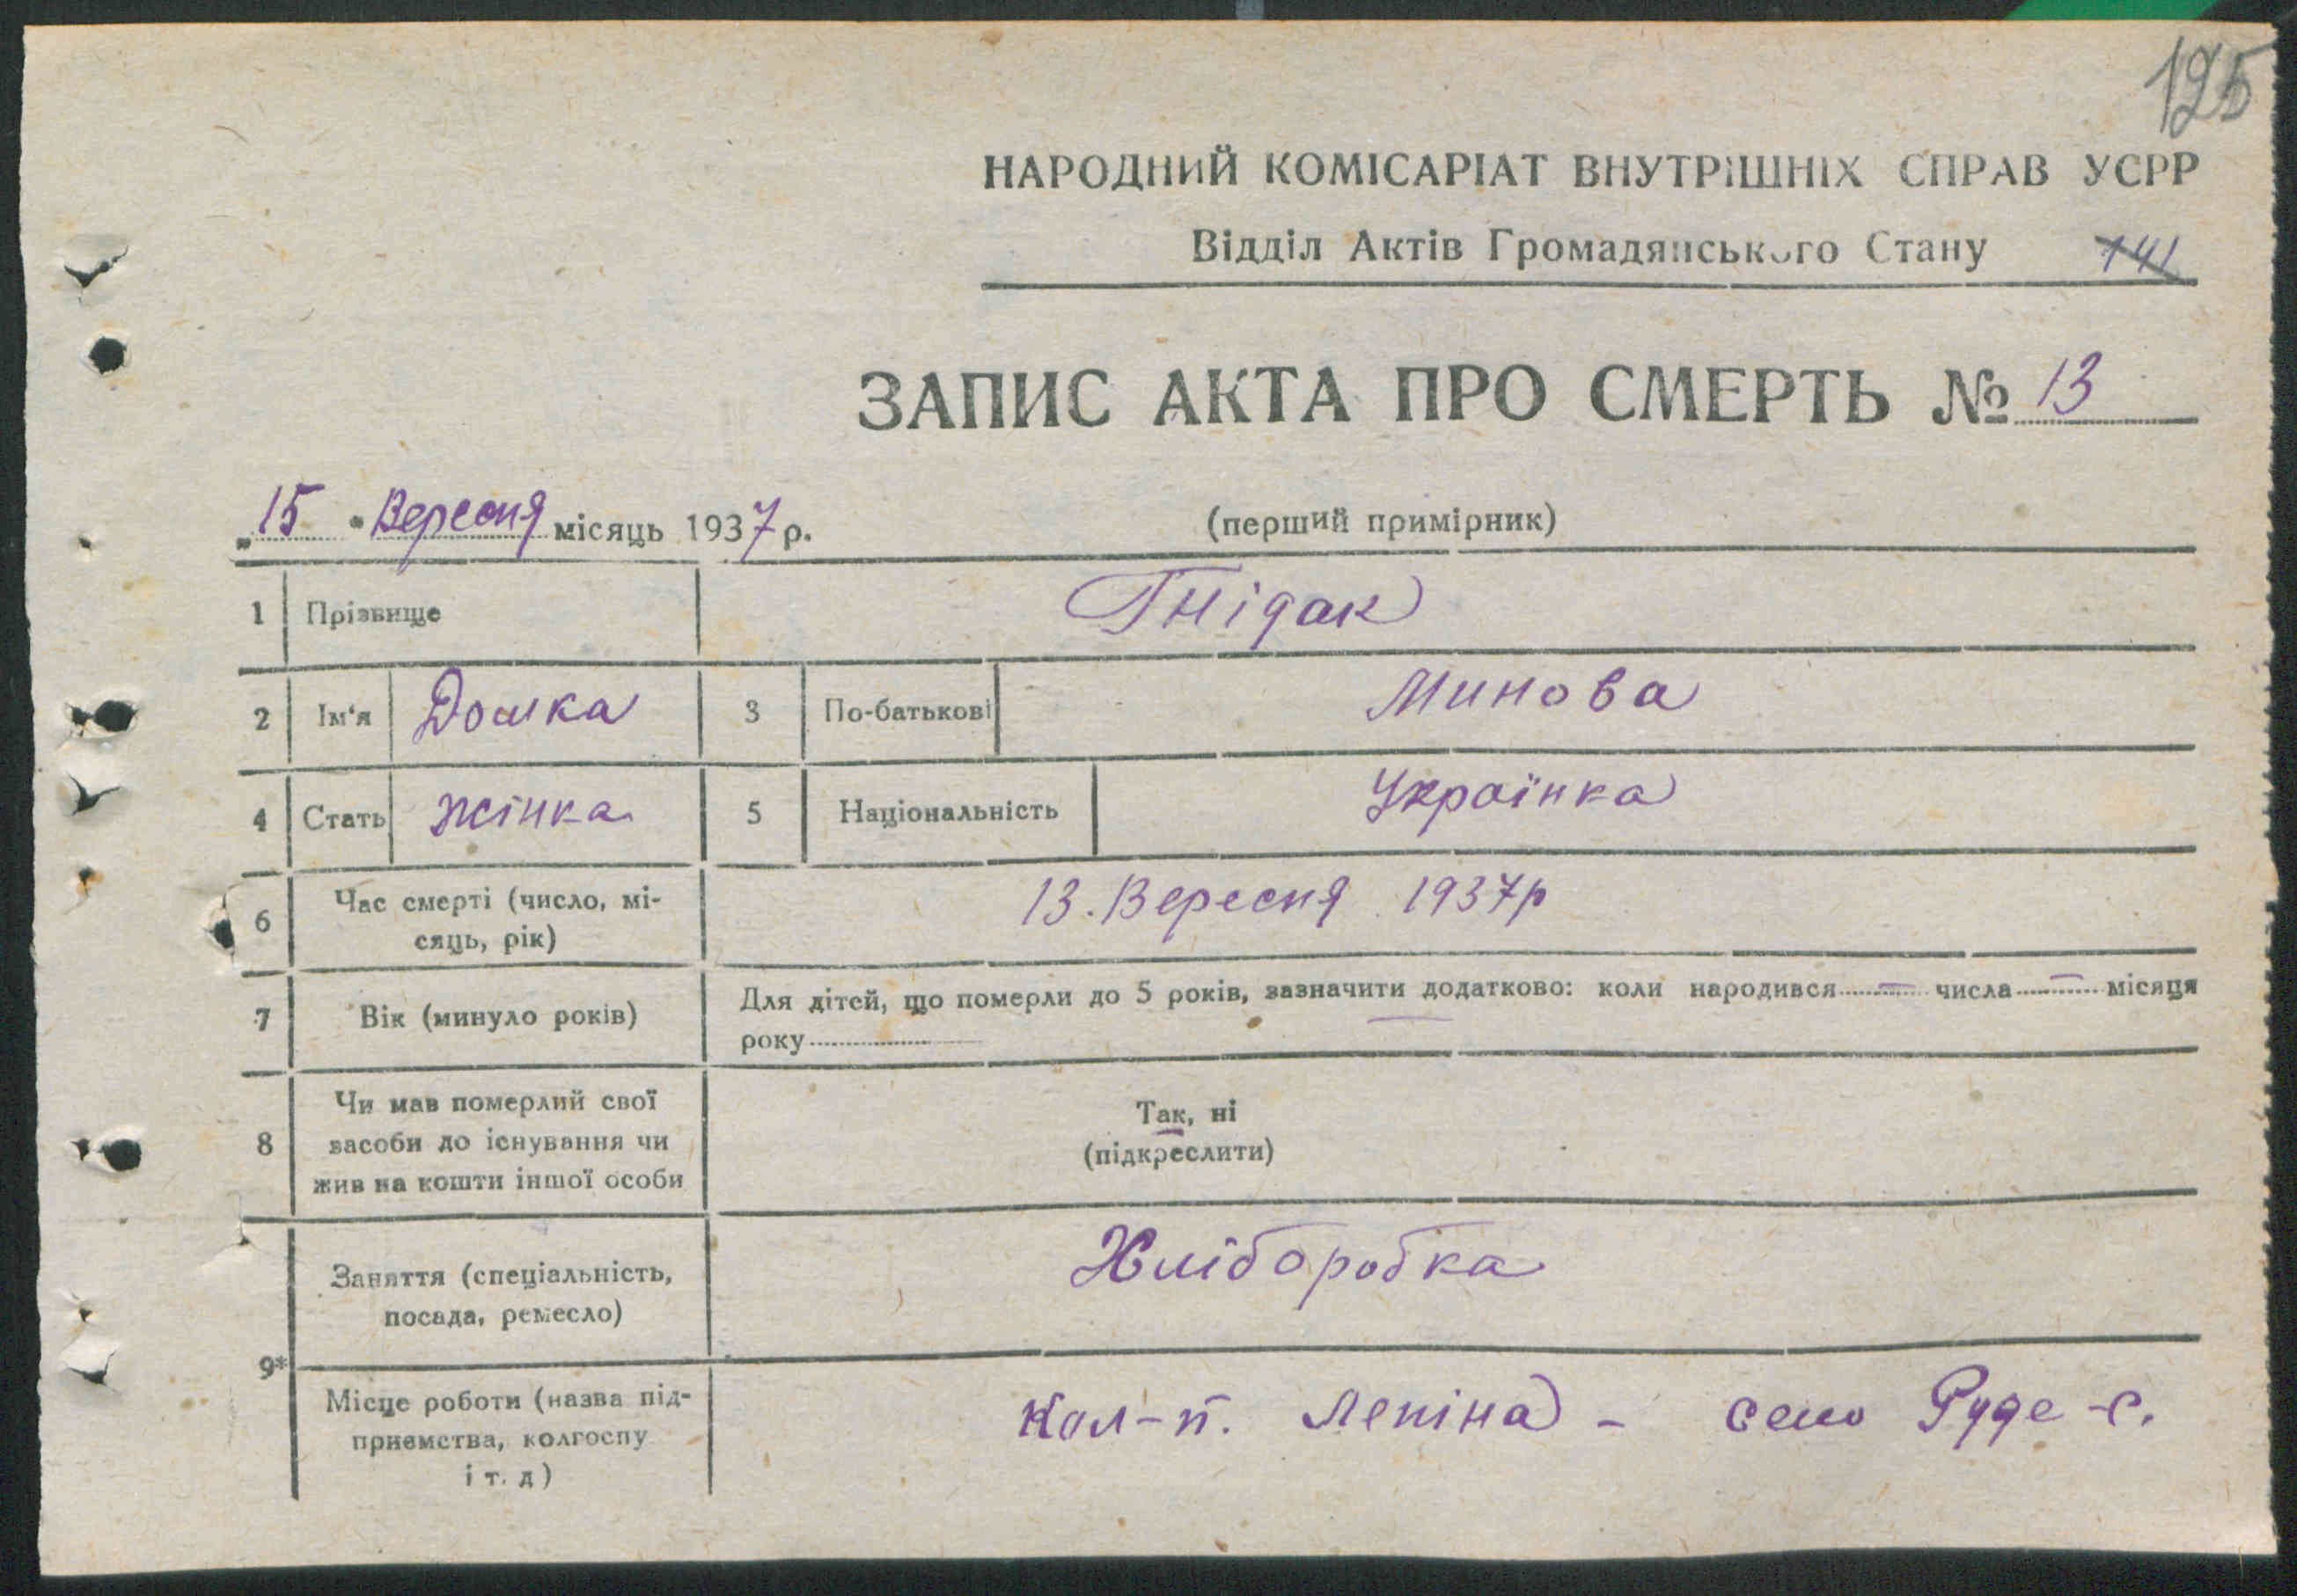 125
НАРОДНИЙ КОМІСАРІАТ ВНУТРІШНІХ СПРАВ УСРР
Відділ Актів Громадянського Стану 141
ЗАПИС АКТА ПРО СМЕРТЬ № 13
„15" Вересня місяць 1937 р. (перший примірник)
1 Прізвище Гнідак
2 Ім'я Домка 3 По-батькові Минова
4 Стать жінка 5 Національність Українка
6 Час смерті (число, мі-
сяць, рік) 13. Вересня 1937р
7 Вік (минуло років) Для дітей, що померли до 5 років, зазначити додатково: коли народився — числа — місяця
року
8 Чи мав померлий свої
засоби до існування чи
жив на кошти іншої особи
Так, ні
(підкреслити)
9*
Заняття (спеціальність,
посада, ремесло) Хліборобка
Місце роботи (назва під-
приємства, колгоспу
і т. д) Кол-п. Леніна - село Руде-с.